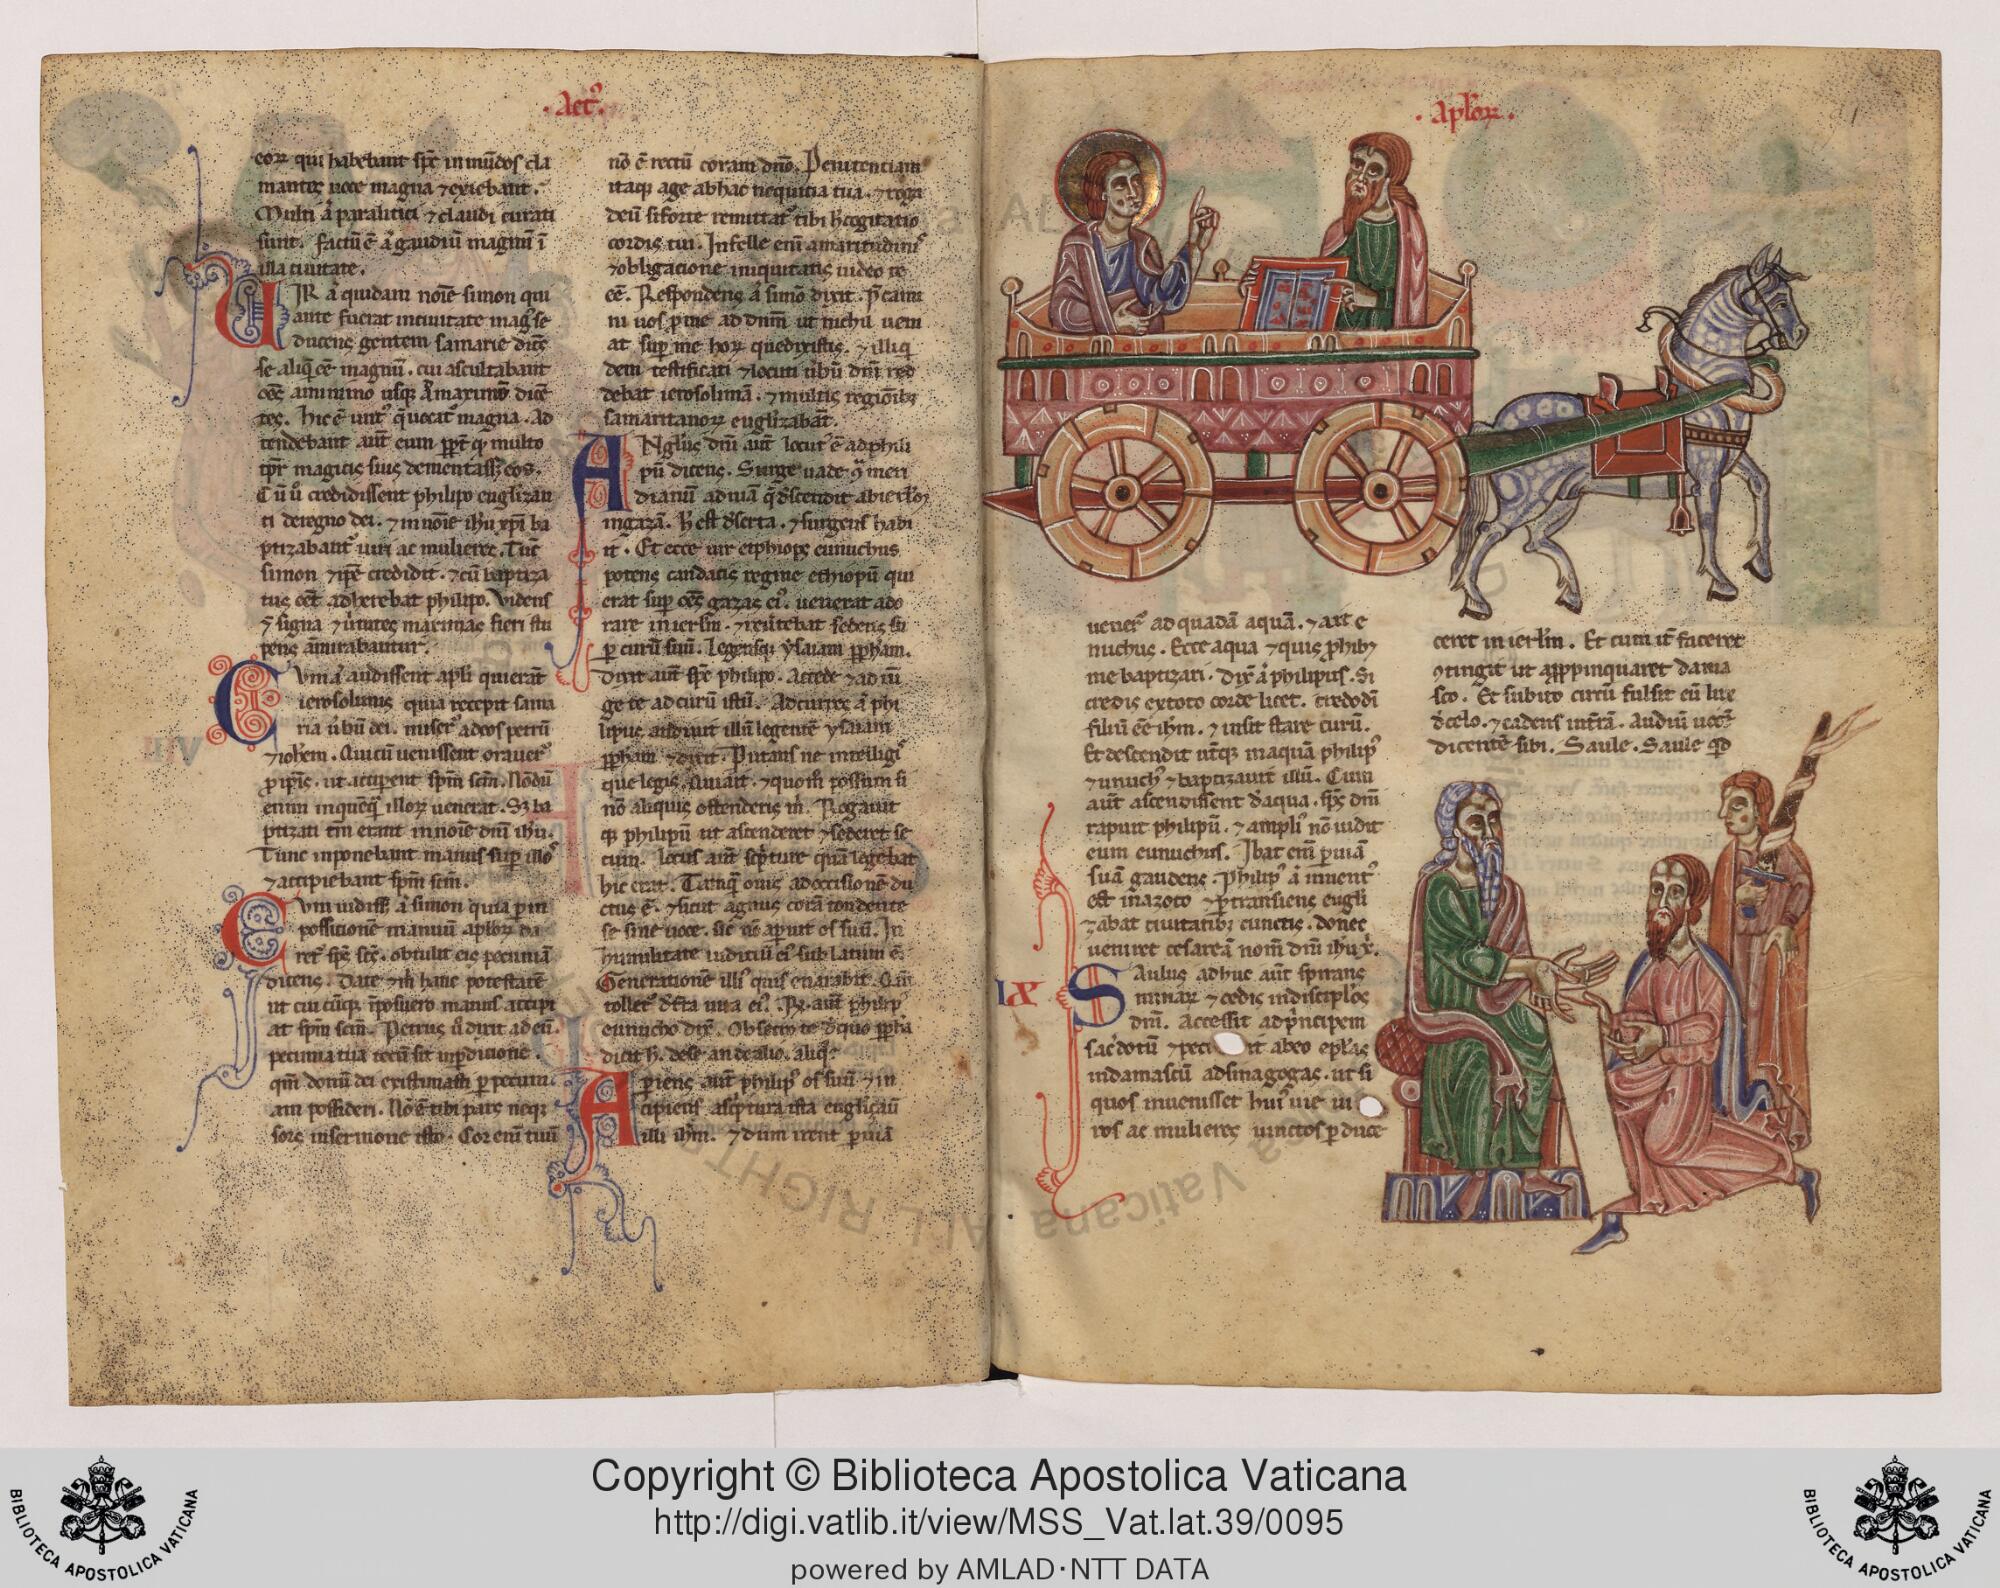 · Act᷒ ·
eoꝝ qui habebant sp̄c inmūdos cla
mantes uoce magna ⁊ exiebant.
Multi ā paralitici ⁊ claudi curati
sunt. factū ē ā gaudiū magnū ī
illa ciuitate.
UIR ā quidam noīe simon qui
ante fuerat in ciuitate mag᷒ se
ducens gentem samarie dicēs
se aliqē cē magnū. cui ascultabant
ōēs a minimo usq;
Hic ē
tendebant aūt eum
magicis suis dementasset eos.
Cū ū credidissent philipo euglizan
ti de regno dei. ⁊ in noīe ih̄u xp̄i ba
ptizabant᷒ uiri ac mulieres. Tūc
simon ⁊ ip̄e credidit. ⁊ cū baptiza
tus cēt adherebat philipo. Videns
signa ⁊ uirtutes maximas fieri stu
pens ammirabantur.
Cum ā audissent apl̄i qui erāt
ierosolimis quia recepit sama
ria ūbū dei. miser᷒ ad eos petrū
⁊ ioh̄em. Qui cū uenissent orauer᷒
p̄ ip̄is. ut acciperent sp̄m sc̄m. Nōdū
enim in quēqē illoꝝ uenerat. Sꝫ ba
ptizati tm̄ erant in noīe dn̄i ih̄u.
Tunc inponebant manus sup illos
⁊ accipiebant sp̄m sc̄m.
Cum uidiss; ā simon quia p in
possitionē manuū aploꝝ da
ret᷒ sp̄s sc̄s. obtulit eis pecuniā
dicens. Date ⁊ m̄ hanc potestatē
ut cuicūq; īposuero manus accipi
at sp̄m sc̄m. Petrus ū dixit ad eū.
pecunia tua tecū sit in pdicione.
qm̄ donū dei existimasti p pecuni
am possideri. Nō ē tibi pars neq;
sors in sermone isto. Cor enī tuū
nō ē rectū coram dn̄o. Penitentiam
itaq; age ab hac nequicia tua. ⁊ roga
deū si forte remittat᷒ tibi h̄ cogitatio
cordis tui. In felle enī amaritudinis
⁊ obligacione iniquitatis uideo te
cē. Respondens ā simō dixit. p̄cami
ni uos p me ad dn̄m ut nichil ueni
at sup me hoꝝ que dixistis. ⁊ illi q
dem testificati ⁊ locuti ūbū dn̄i red
debat ierosolimā. ⁊ multis regionib;
samaritanoꝝ euglizabāt.
ANgl̄us dn̄i aūt locut᷒ ē ad phili
pū dicens. Surge uade
dianū ad uiā q̄ descendit ab ierl̄m
in gazā. h̄ est deserta. ⁊ surgens habi
it. Et ecce uir ethiops eunuchus
potens candacis regine ethiopū qui
erat sup oēs gazas ei᷒. uenerat ado
rare in ierl̄m. ⁊ reūtebat sedens su
p currū suū. legensq; ysaiam pph̄am.
dixit aūt sp̄c philipo. Accede ⁊ adiū
ge te ad currū istū. Adcurrēs ā phi
lipus audiuit illū legentē ysaiam
pph̄am ⁊ dixit. Putas ne intelligis
que legis. Qui ait. ⁊ quom̄ possum si
nō aliquis ostenderit m̄. Rogauit
q philipū ut ascenderet ⁊ sederet se
cum. locus aūt scpture quā legebat
hic erat. Tamq̄ ouis ad occisionē du
ctus ē. ⁊ sicut agnus corā tondente
se sine uoce. sic nō aperuit os suū. In
humilitate iudiciū ei᷒ sublatum ē.
Generationē illi᷒ quis enarabit. Qm̄
tollet᷒ d tr̄a uita ei᷒. R̄. aūt philip᷒
eunucho dix̄. Obsecro te d quo pph̄a
dicit h̄. de se an de alio. aliq᷒
Apiens aūt philip᷒ os suū ⁊ in
cipiens a scptura ista eugliçauīt
illi ih̄m. ⁊ dum irent p uiā
· Aploꝝ ·
91
uener᷒ ad quadā aquā. ⁊ ait e
nuchus. Ecce aqua ⁊ quis phib;
me baptizari. Dix̄ ā philipus. Si
credis ex toto corde licet. credo dī
filiū cē ih̄m. ⁊ iusit stare currū.
Et descendit utq; in aquā philip᷒
⁊ unuch᷒ ⁊ baptizauit illū. Cum
aūt ascendissent d aqua. sp̄c dn̄i
rapuit philipū. ⁊ ampli᷒ nō uidit
eum eunuchus. Ibat enī p uiā
suā gaudens. philip᷒ ā inuent᷒
est in azoto ⁊ ptransiens eugli
zabat ciuitatib; cunctis. donec
ueniret cesareā nom̄ dn̄i ih̄u x̄.
IX
Saulus adhuc aūt spirans
minaꝝ ⁊ cedis in discipl̄os
dn̄i. Accessit ad p̄ncipem
sac̄dotū ⁊ peciit ab eo epl̄as
in damascū ad sinagogas. ut si
quos inuenisset hui᷒ uie ui
ros ac mulieres uinctos p duce
ceret in ierl̄m. Et cum it᷒ faceret
ɔtingit ut appropinquaret dama
sco. Et subito circū fulsit eū lux
d celo. ⁊ cadens in trā. Audiuit uocē
dicentē sibi. Saule. Saule qd
Copyright © Biblioteca Apostolica Vaticana
http://digi.vatlib.it/view/MSS_Vat.lat.39/0095
powered by AMLAD·NTT DATA
BIBLIOTECA APOSTOLICA VATICANA
BIBLIOTECA APOSTOLICA VATICANA